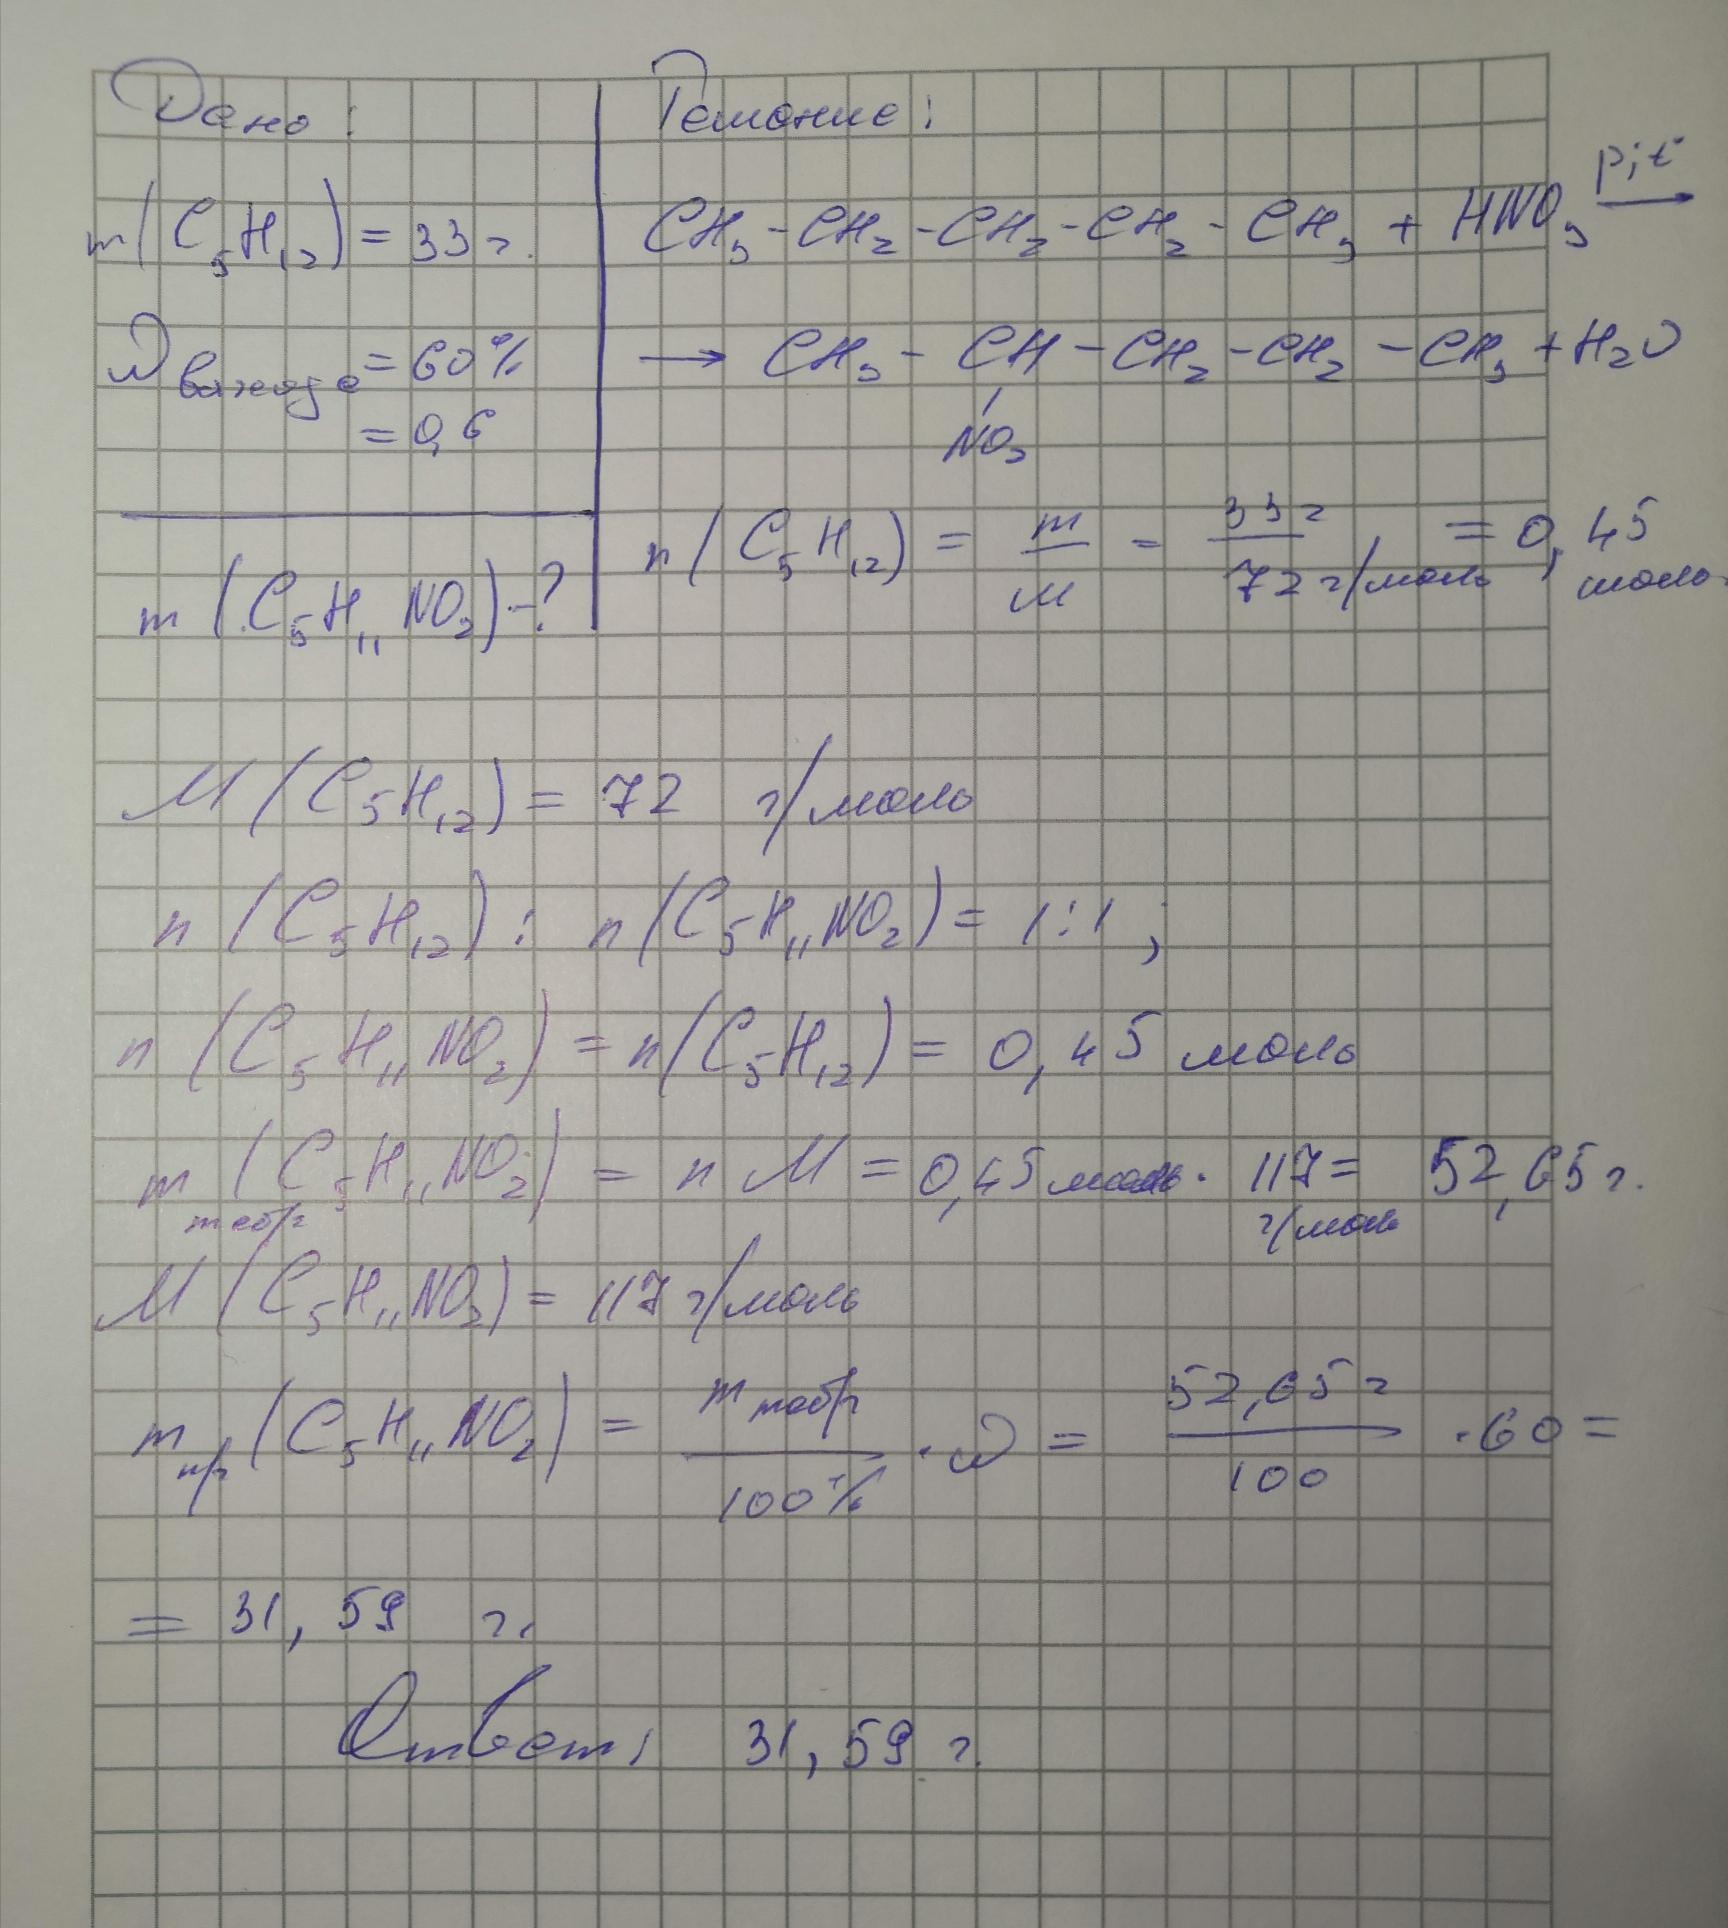 Дано:
m(C₅H₁₂) = 33 г.
W выхода = 60%
= 0,6
m(C₅H₁₁NO₂) - ?
Решение:
CH₃ - CH₂ - CH₂ - CH₂ - CH₃ + HNO₃ p,t →
→ CH₃ - CH - CH₂ - CH₂ - CH₃ + H₂O
NO₂
n(C₅H₁₂) = m/M = 33 г/72 г/моль = 0,45 моль
M(C₅H₁₂) = 72 г/моль
n(C₅H₁₂) : n(C₅H₁₁NO₂) = 1:1;
n(C₅H₁₁NO₂) = n(C₅H₁₂) = 0,45 моль
m теор(C₅H₁₁NO₂) = n M = 0,45 моль · 117 г/моль = 52,65 г.
M(C₅H₁₁NO₂) = 117 г/моль
m пр(C₅H₁₁NO₂) = m теор/100% · ω = 52,65 г/100 · 60 =
= 31,59 г.
Ответ: 31,59 г.